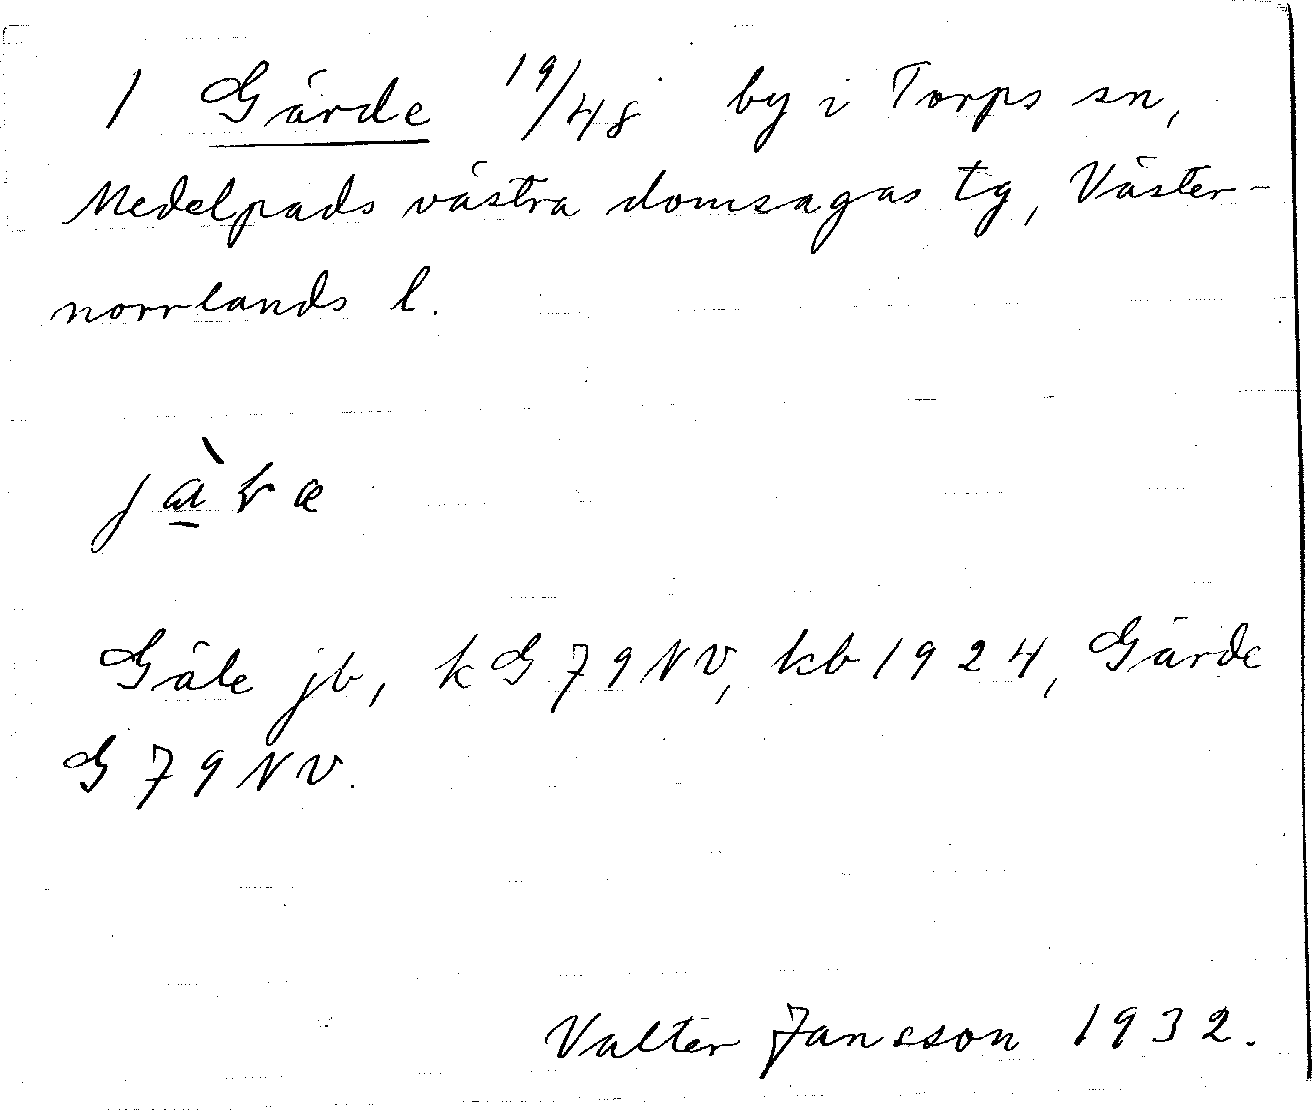 1 Gärde 19/48 by i Torps sn,
Medelpads västra domsagas tg, Väster-
norrlands l.
Gäle jb, k G79NV, kb 1924, Gärde
G79NV.
Valter Jansson 1932.